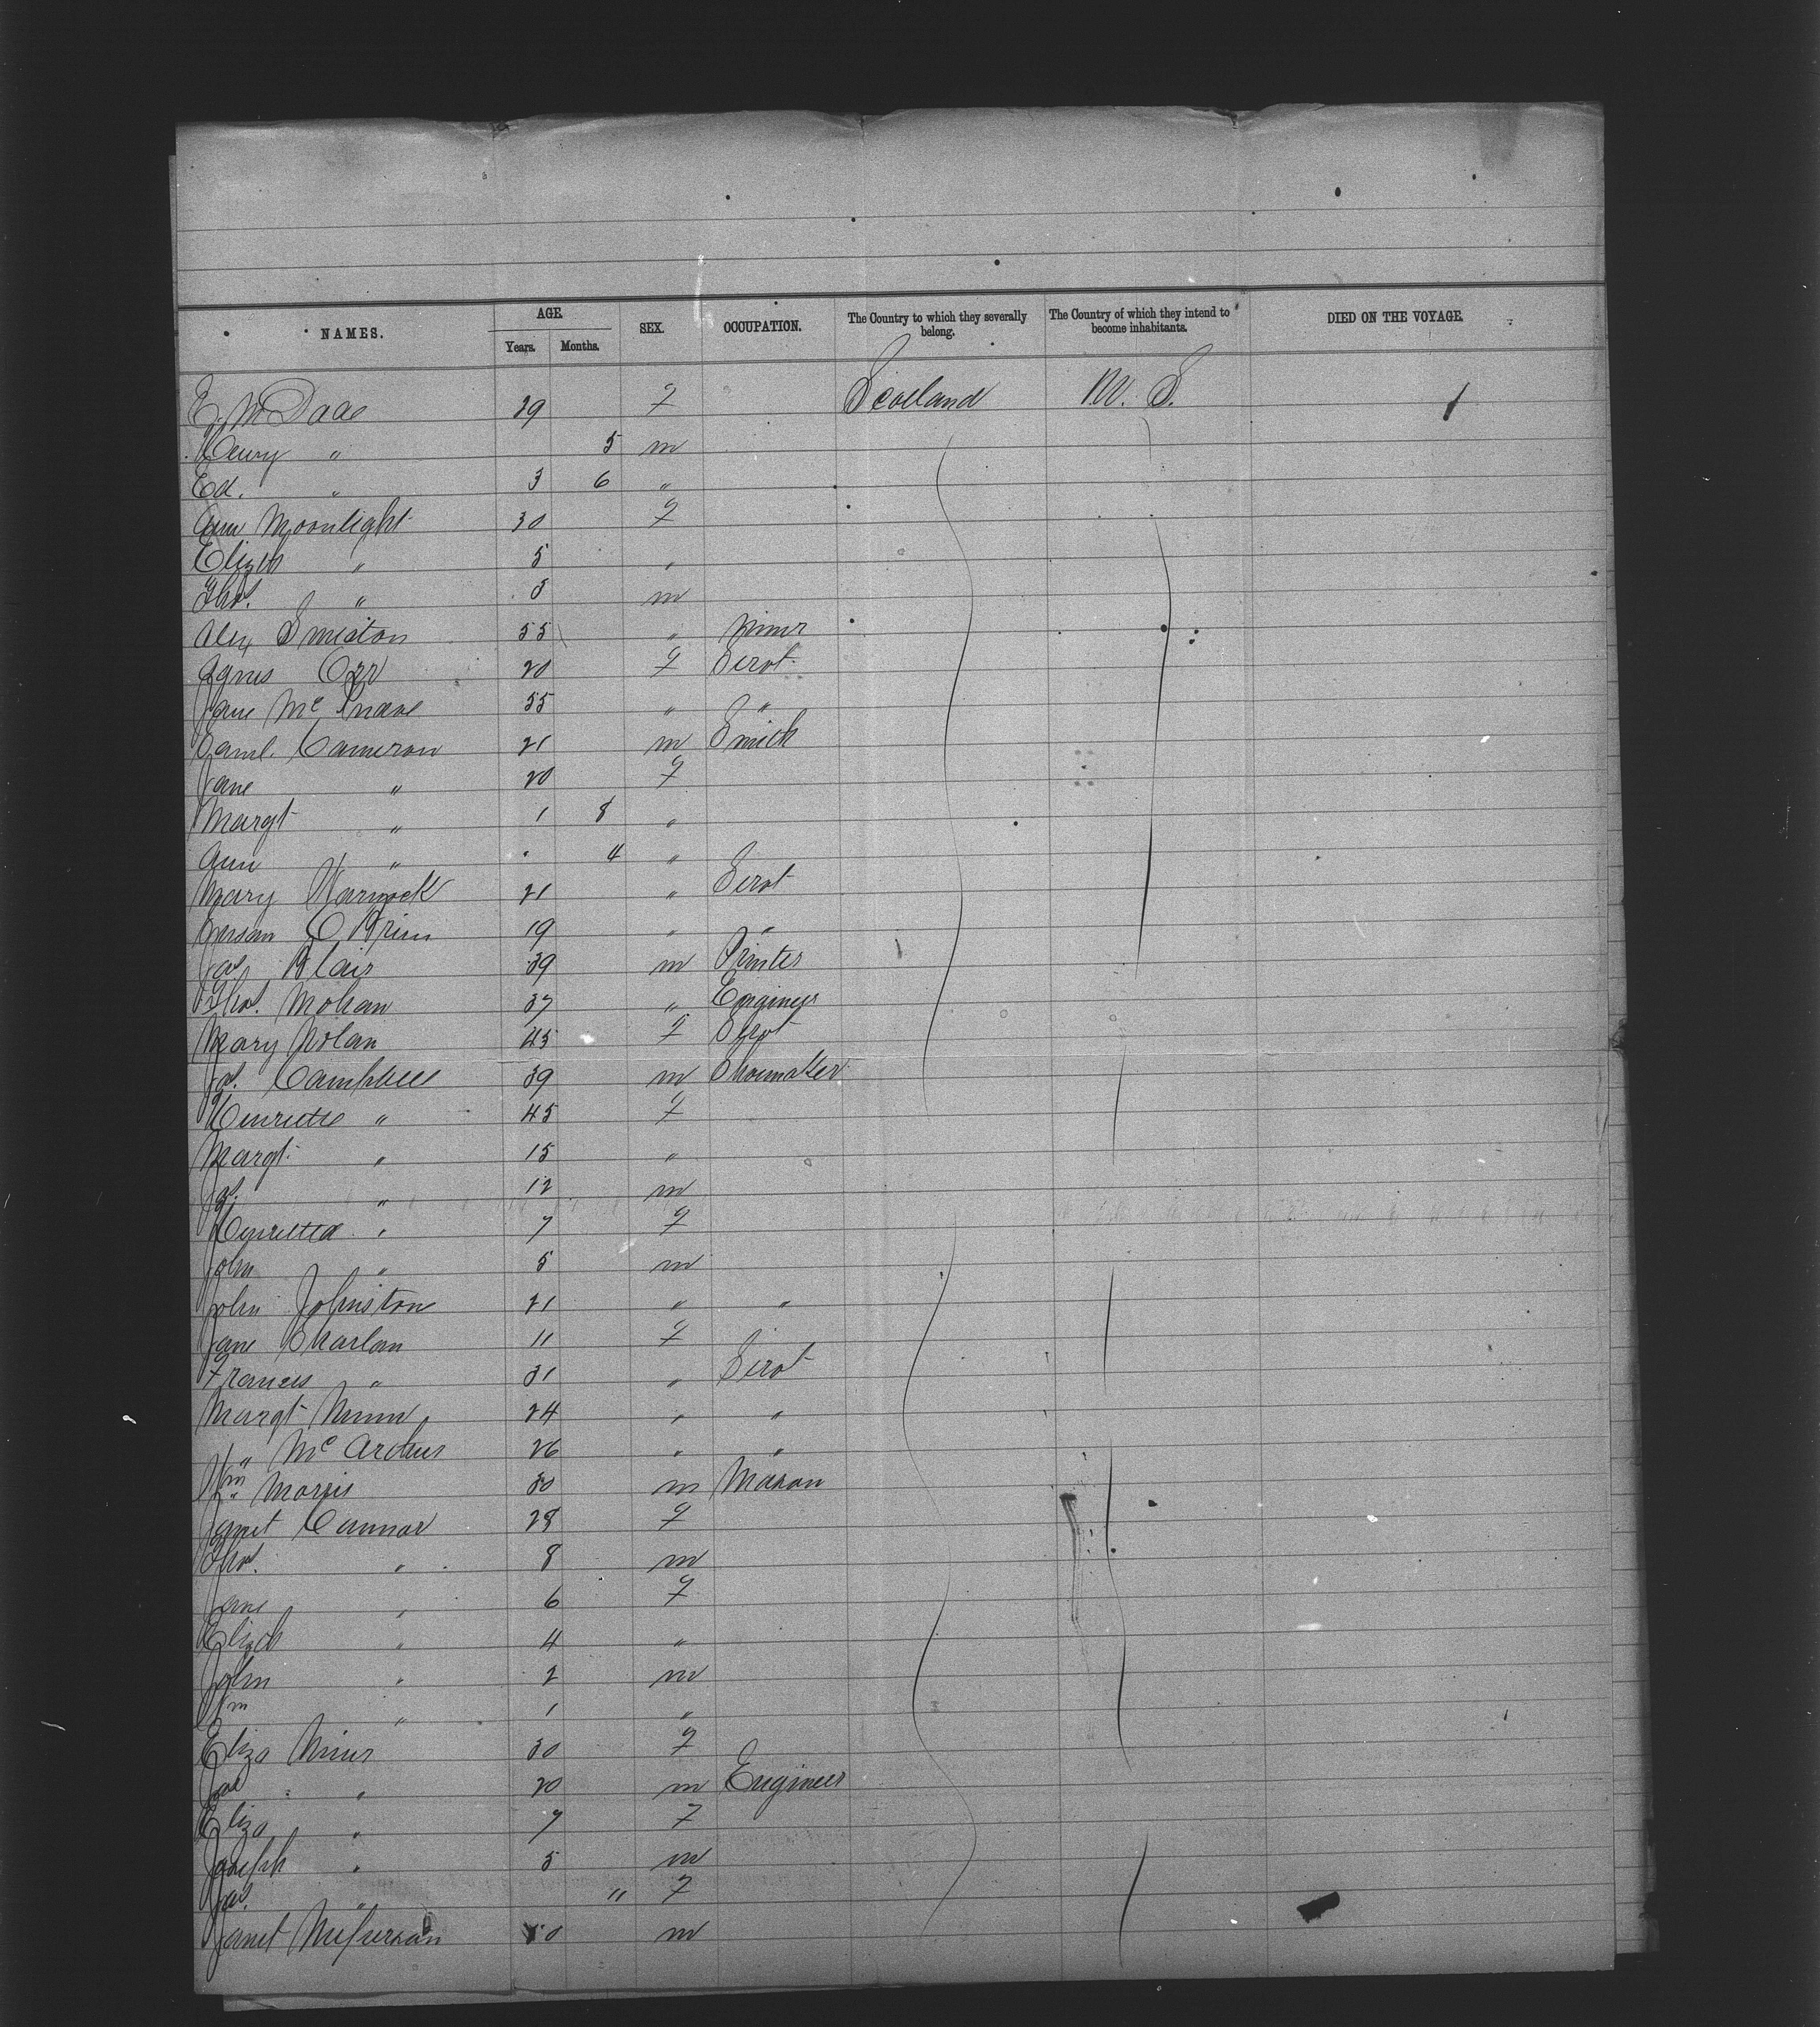 NAMES. AGE. SEX. OCCUPATION. The Country to which they severally belong. The Country of which they intend to become inhabitants. DIED ON THE VOYAGE.
Years. Months.
E. McDade 29 F Scotland U. S.
Henry " 5 m
Ed. " 3 6 "
Ann Moonlight 30 F
Elizth " 5 "
Thos. " 3 m
Alex Smeaton 55 " Miner
Agnes Orr 20 F Servt
Jane Mc 55 " "
Saml. Cameron 21 m Smith
Jane " 20 F
Margt " 1 8 "
Ann " 4 "
Mary Warnock 21 " Servt
O'Brien 19 " "
Jas Blair 39 m Printer
Thos. Mohan 37 " Engineer
Mary Nolan 45 F Servt
Js. Campbell 39 m Shoemaker
Henrietta " 45 F
Margt. " 15 "
Js. " 12 m
Henrietta " 7 F
John " 5 m
John Johnston 21 " "
Jane 11 F
Frances " 31 " Servt
Margt 24 " "
" McArthur 26 " "
Wm Morris 30 m Mason
Janet Connor 28 F
Thos. " 8 m
Jane " 6 F
Elizth " 4 "
John " 2 m
Wm " 1 "
Eliza 30 F
Jas " 20 m Engineer
Eliza " 7 F
Joseph " 5 m
Jas. " " F
Janet McPherson m